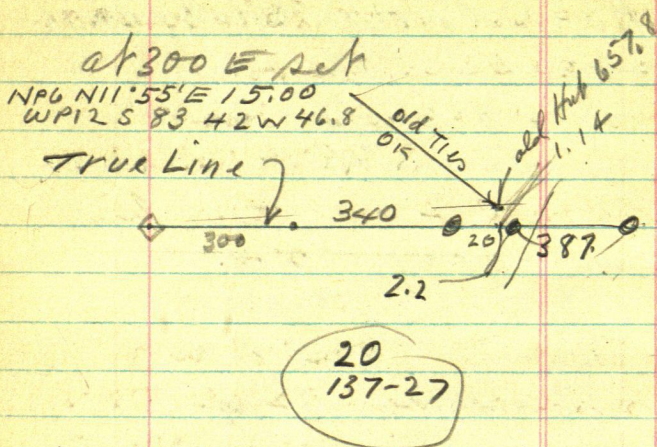 at 300 E set
NP6 N11°55'E 15.00
WP12 S 83 42 W 46.8
old Ties
OK
old Hub 657.8
1.14
True Line
300
340
20
387.
2.2
20
137-27